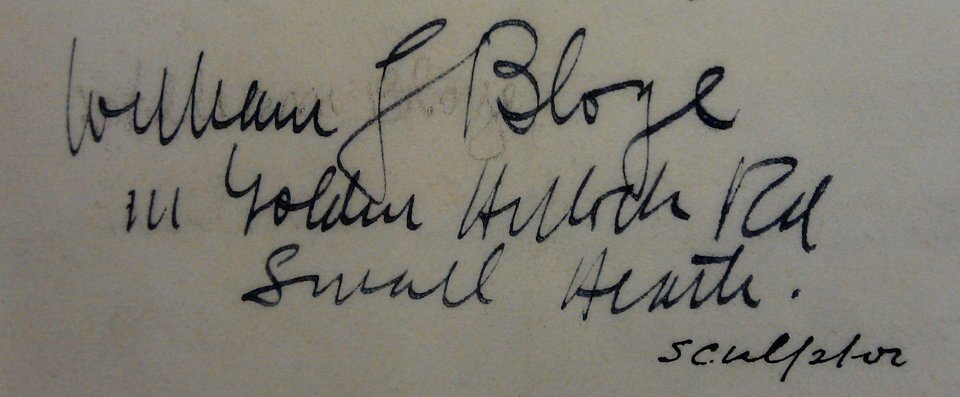 William J Bloye
111 Golden Hillock Rd
Small Heath.
sculptor